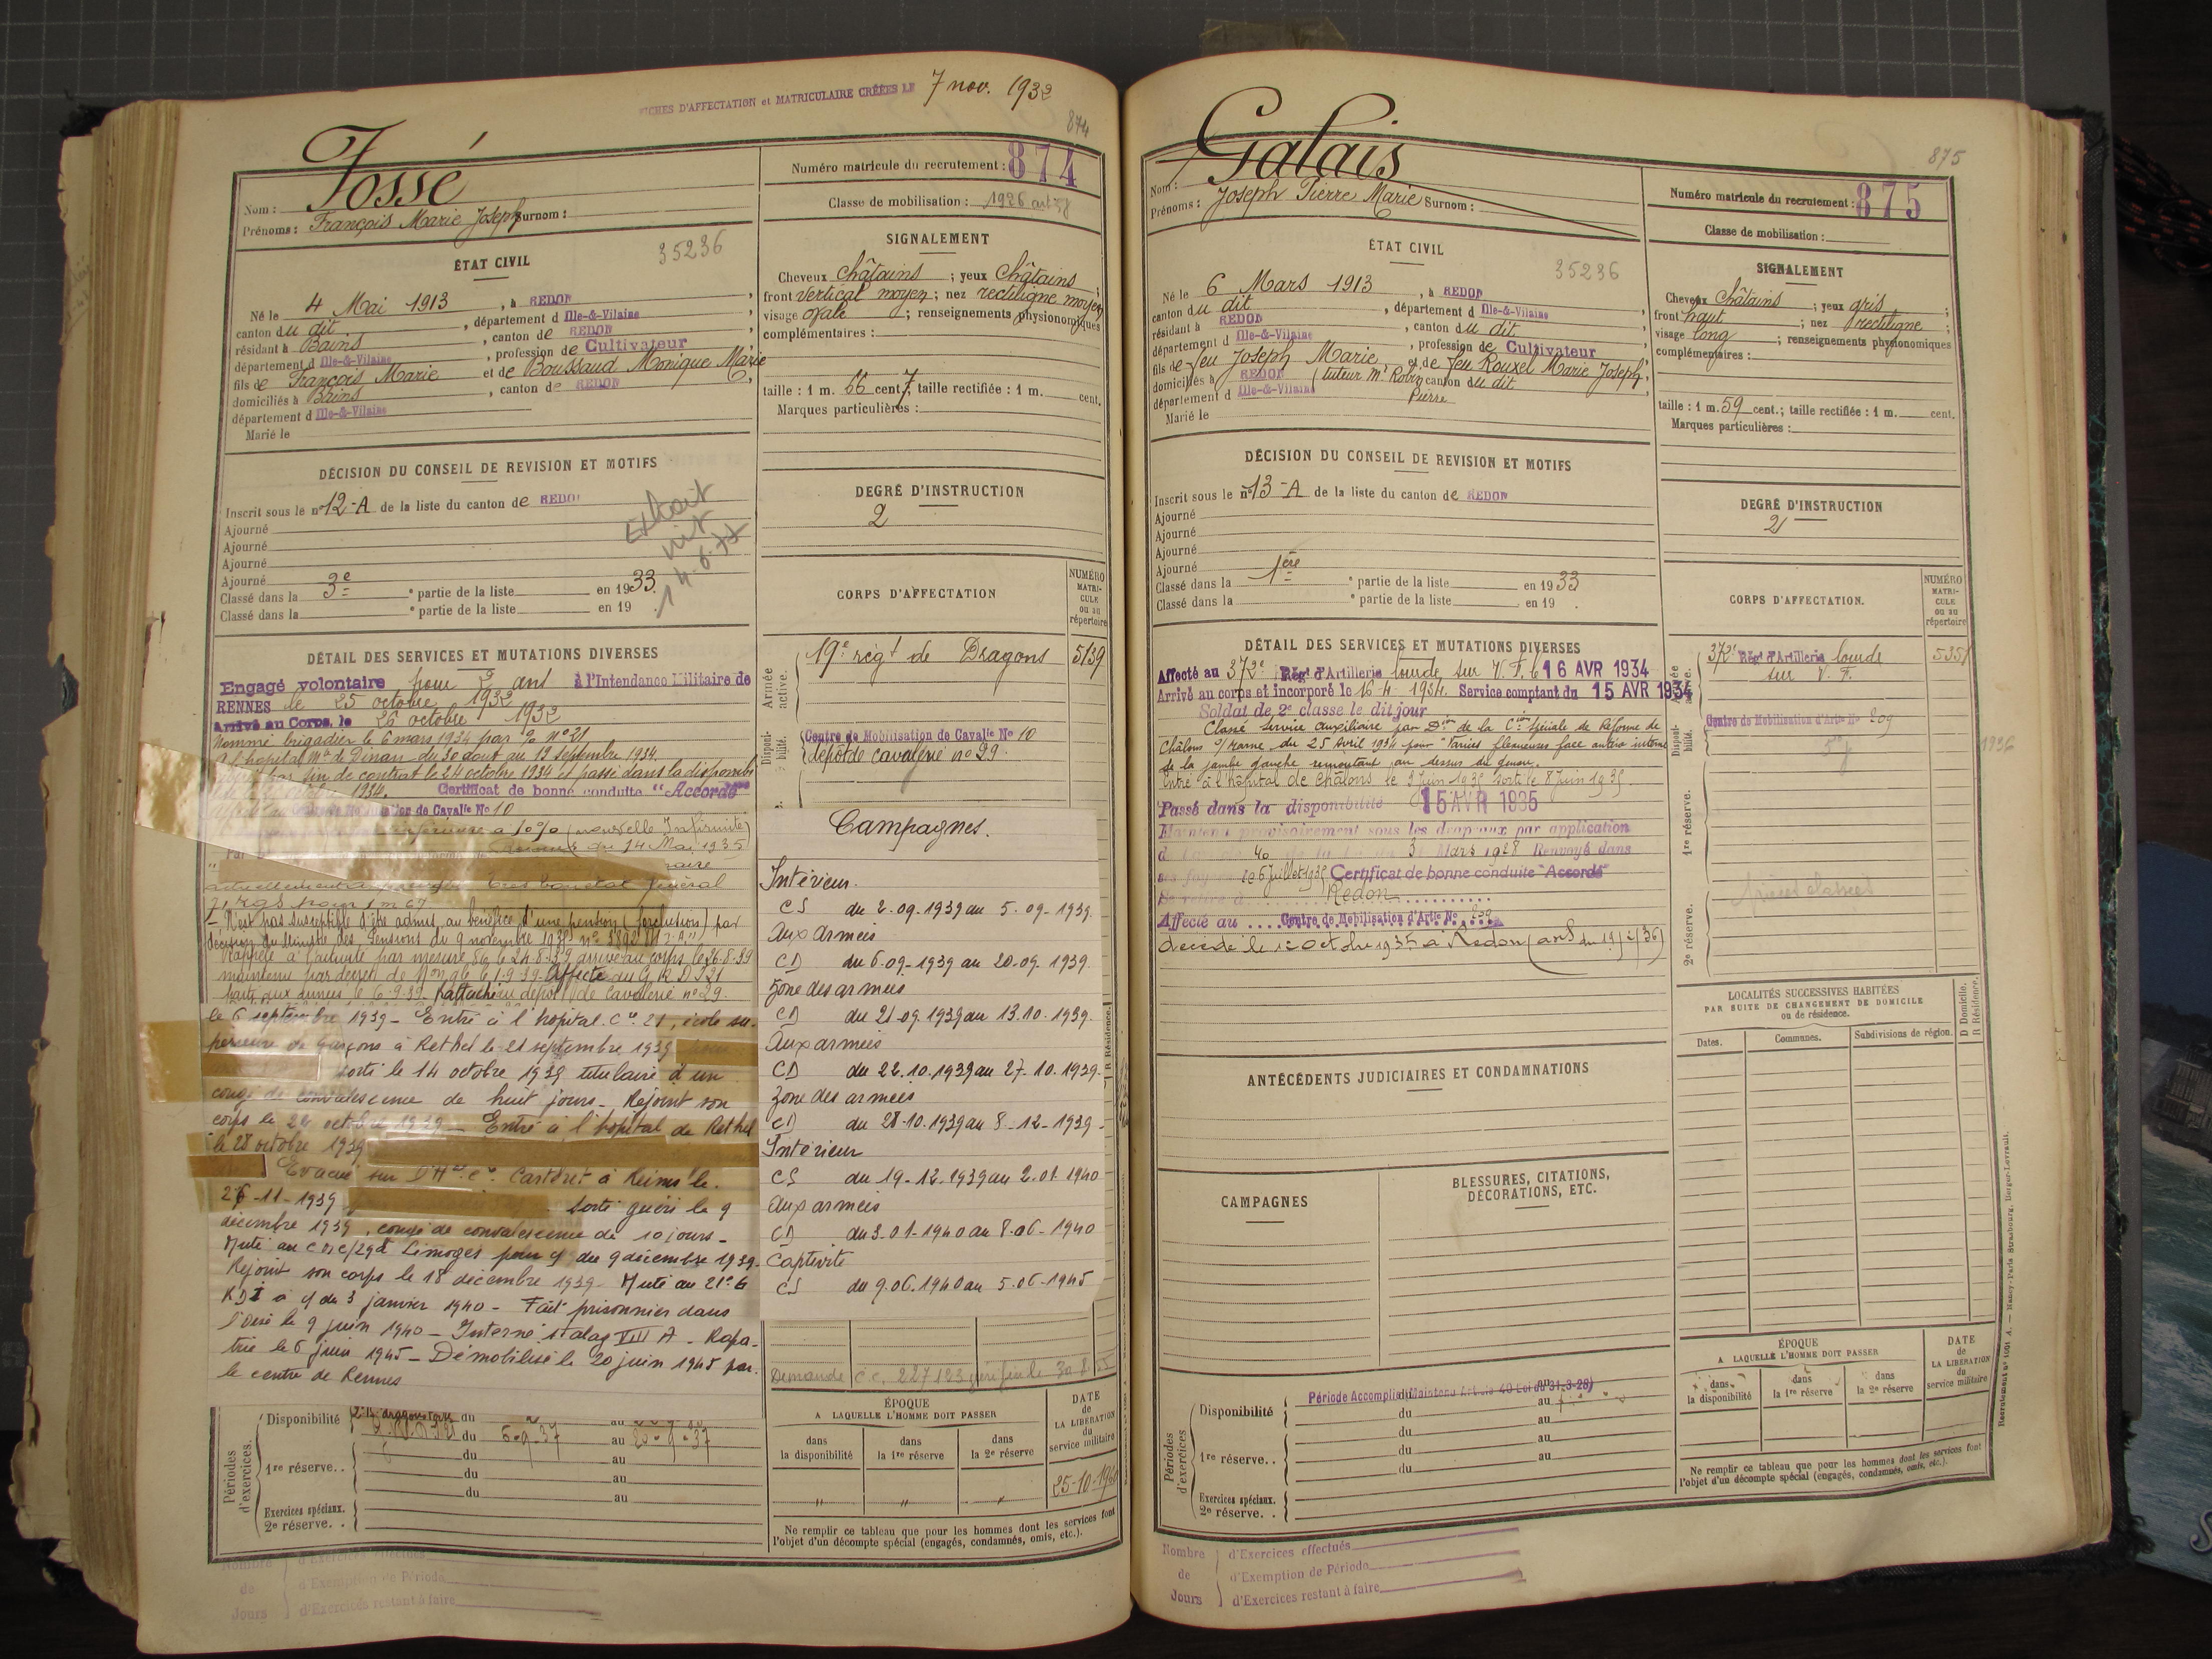 FICHES D'AFFECTATION et MATRICULAIRE CRÉÉES LE 7 nov. 1932
874
Fossé
Nom :
Prénoms : François Marie Joseph Surnom :
Numéro matricule du recrutement : 874
Classe de mobilisation : 1926
ÉTAT CIVIL
35236
Né le 4 Mai 1913, à REDON,
canton du dit, département d Ille-&-Vilaine
résidant à Bains, canton de REDON,
département d Ille-&-Vilaine, profession de Cultivateur
fils de François Marie et de Boussaud Monique Marie
domiciliés à Bains, canton de REDON,
département d Ille-&-Vilaine
Marié le
SIGNALEMENT
Cheveux Châtains ; yeux Châtains ;
front vertical moyen ; nez rectiligne moyen
visage ovale ; renseignements physionomiques
complémentaires :
taille : 1 m. 66 cent 7 ; taille rectifiée : 1 m. cent.
Marques particulières :
DÉCISION DU CONSEIL DE REVISION ET MOTIFS
Inscrit sous le n° 12-A de la liste du canton de REDON
Ajourné
Ajourné
Ajourné
Ajourné
Classé dans la 3e partie de la liste en 1933.
Classé dans la ° partie de la liste en 19 .
DEGRÉ D'INSTRUCTION
2
CORPS D'AFFECTATION
NUMÉRO MATRICULE ou au répertoire
Armée active.
19e régt de Dragons 5139
Disponibilité.
Centre de Mobilisation de Cavalie No 10
dépôt de cavalerie no 29.
DÉTAIL DES SERVICES ET MUTATIONS DIVERSES
Engagé volontaire pour 2 ans à l'Intendance Militaire de
RENNES le 25 octobre 1932
Arrivé au Corps, le 26 octobre 1932
Nommé brigadier le 6 mars 1934 par
hopital Mre de Dinan du 30 août au 19 septembre 1934.
par fin de contrat le 24 octobre 1934 et passé dans la disponib
1934. Certificat de bonne conduite "Accordé"
de Cavalie No 10
à 10% (nouvelle Infirmité)
du 14 Mai 1935
actuellement très bon état général
71 Kgs pour 1m67
- N'est pas susceptible d'être admis au bénéfice d'une pension (forclusion) par
décision du Ministre des Pensions du 9 novembre 193
Rappelé à l'activité par mesure le 24-8-39 arrivé au corps le 26-8-39
maintenu par décret de Mon gle le 1-9-39. Affecté au G R D I 21
parti aux armées le 6-9-39. Rattaché au dépôt de Cavalerie no 29.
le 6 septembre 1939 - Entré à l'hopital. Ce. 21, école su-
perieure de garçons à Rethel le 21 septembre 1939
sorti le 14 octobre 1939 titulaire d'un
congé de convalescence de huit jours - Rejoint son
corps le 22 octobre 1939 - Entré à l'hopital de Rethel
le 28 octobre 1939
Evacué sur à Reims le
26-11-1939 sorti guéri le 9
décembre 1939, congé de convalescence de 10 jours -
Muté au Limoges pour du 9 décembre 1939.
Rejoint son corps le 18 décembre 1939 - Muté au 21e G
R D I à du 3 janvier 1940 - Fait prisonnier dans
l'Oise le 9 juin 1940 - Interné stalag VIII A - Rapa-
trié le 6 juin 1945 - Démobilisé le 20 juin 1945 par
le centre de Rennes
Campagnes.
Intérieur.
CS du 2.09.1939 au 5.09.1939.
Aux armées
CD du 6.09-1939 au 20.09.1939.
Zone des armées
CD du 21.09.1939 au 13.10.1939.
Aux armées
CD du 22.10.1939 au 27.10.1939.
Zone des armées
CD du 28-10.1939 au 8-12-1939-
Intérieur
CS du 19-12.1939 au 2.01.1940
Aux armées
CD du 3.01-1940 au 8.06-1940
Captivité
CS du 9.06.1940 au 5.06-1945
Demande C.C. 227123
Périodes d'exercices.
Disponibilité du au
du 6-9-37 au 25-9-37
1re réserve. . du au
du au
du au
Exercices spéciaux.
2e réserve. .
ÉPOQUE
A LAQUELLE L'HOMME DOIT PASSER
dans la disponibilité
dans la 1re réserve
dans la 2e réserve
DATE de LA LIBÉRATION du service militaire
" " " 25-10-1960
Ne remplir ce tableau que pour les hommes dont les services font
l'objet d'un décompte spécial (engagés, condamnés, omis, etc.).
Nombre de Jours
d'Exercices effectués
d'Exemption de Période
d'Exercices restant à faire
875
Galais
Nom :
Prénoms : Joseph Pierre Marie Surnom :
Numéro matricule du recrutement : 875
Classe de mobilisation :
ÉTAT CIVIL
35236
Né le 6 Mars 1913, à REDON
canton du dit, département d Ille-&-Vilaine
résidant à REDON, canton du dit,
département d Ille-&-Vilaine, profession de Cultivateur
fils de feu Joseph Marie et de feu Rouxel Marie Joseph,
domiciliés à REDON (tuteur Mr Robin canton du dit
département d Ille-&-Vilaine Pierre
Marié le
SIGNALEMENT
Cheveux Châtains ; yeux gris ;
front haut ; nez rectiligne ;
visage long ; renseignements physionomiques
complémentaires :
taille : 1 m. 59 cent. ; taille rectifiée : 1 m. cent.
Marques particulières :
DÉCISION DU CONSEIL DE REVISION ET MOTIFS
Inscrit sous le n° 13-A de la liste du canton de REDON
Ajourné
Ajourné
Ajourné
Ajourné
Classé dans la 1ère ° partie de la liste en 1933
Classé dans la ° partie de la liste en 19 .
DEGRÉ D'INSTRUCTION
2
CORPS D'AFFECTATION.
NUMÉRO MATRICULE ou au répertoire
372e Régt d'Artillerie lourde
sur V. F.
Centre de Mobilisation d'Artie No 209
1936
Disponibilité.
1re réserve.
2e réserve.
DÉTAIL DES SERVICES ET MUTATIONS DIVERSES
Affecté au 372e Régt d'Artillerie lourde sur V. F. le 16 AVR 1934
Arrivé au corps et incorporé le 16-4-1934. Service comptant du 15 AVR 1934
Soldat de 2e classe le dit jour
Classé service auxiliaire par Don de la Cion spéciale de Réforme de
Châlons s/marne du 25 Avril 1934 pour "Varices flexueuses face antéro interne
de la jambe gauche remontant au dessus du genou.
Entré à l'hôpital de Châlons le 3 Juin 1935 sorti le 8 Juin 1935.
Passé dans la disponibilité 15 AVR 1935
Maintenu provisoirement sous les drapeaux par application
40 Mars 1928 Renvoyé dans
ses foyers le 6 Juillet 1935 Certificat de bonne conduite "Accordé"
Se retire à Redon
Affecté au .... Centre de Mobilisation d'Artie No
décédé le octobre 1935 à Redon
LOCALITÉS SUCCESSIVES HABITÉES
PAR SUITE DE CHANGEMENT DE DOMICILE
ou de résidence.
Dates. Communes. Subdivisions de région. D Domicile. R Résidence.
ANTÉCÉDENTS JUDICIAIRES ET CONDAMNATIONS
CAMPAGNES
BLESSURES, CITATIONS,
DÉCORATIONS, ETC.
Périodes d'exercices
Disponibilité Période Accomplie (Maintenu Art. 40 Loi du 31-3-28)
du au
du au
1re réserve. . du au
du au
Exercices spéciaux.
2e réserve. .
ÉPOQUE
A LAQUELLE L'HOMME DOIT PASSER
dans la disponibilité
dans la 1re réserve
dans la 2e réserve
DATE de LA LIBÉRATION du service militaire
Ne remplir ce tableau que pour les hommes dont les services font
l'objet d'un décompte spécial (engagés, condamnés, omis, etc.).
Nombre de Jours
d'Exercices effectués
d'Exemption de Période
d'Exercices restant à faire